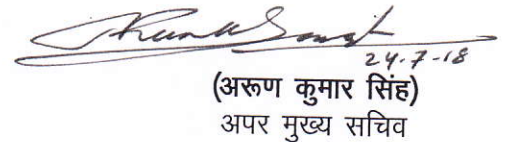 24-7-18
(अरूण कुमार सिंह)
अपर मुख्य सचिव